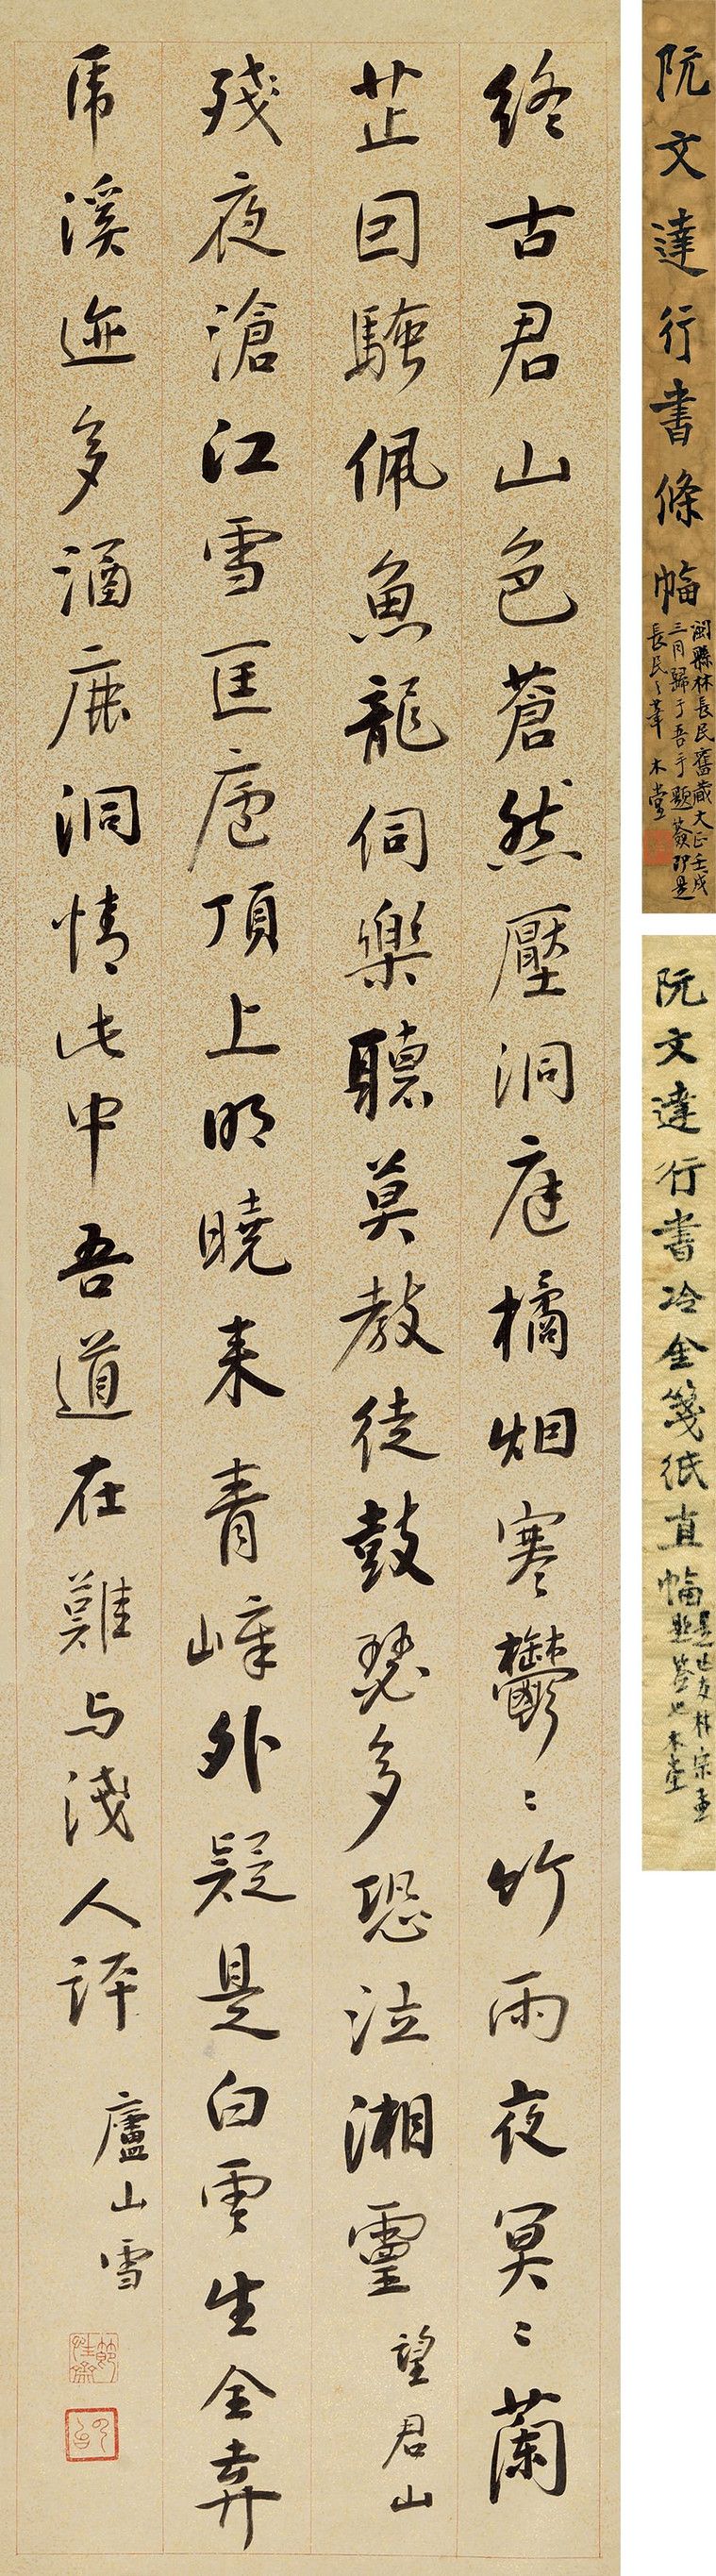 阮文達行書條幅
閩縣林長民舊藏大正壬戌
三月歸于吾手題簽即是
長民之筆 木堂
阮文達行書冷金箋紙直幅
是亡友林宗孟
題簽也木堂
終古君山色蒼然壓洞庭橘烟寒鬱〻竹雨夜冥〻蘭
芷回騷佩魚龍伺樂聽莫教徒鼓瑟多恐泣湘靈 望君山
殘夜滄江雪匡廬頂上明曉来青嶂外疑是白雲生全弃
虎溪迹多酒鹿洞情此中吾道在難与淺人評 廬山雪